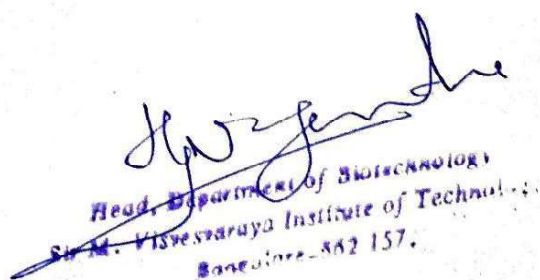 Head, Department of Biotechnology
Sir M. Visvesvaraya Institute of
Bangalore-562 157.